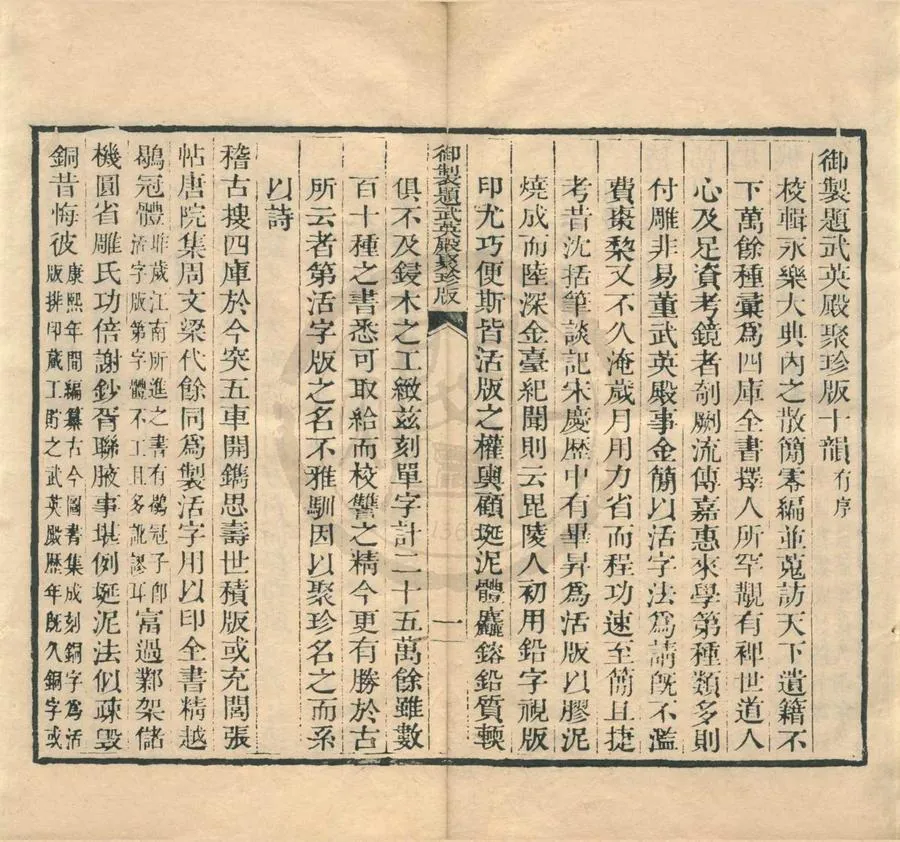 御製題武英殿聚珍版十韻有序
校輯永樂大典內之散簡零編並蒐訪天下遺籍不
下萬餘種彙爲四庫全書擇人所罕覯有裨世道人
心及足資考鏡者剞劂流傳嘉惠來學第種類多則
付雕非易董武英殿事金簡以活字法爲請旣不濫
費棗棃又不久淹歲月用力省而程功速至簡且捷
考昔沈括筆談記宋慶歷中有畢昇爲活版以膠泥
燒成而陸深金臺紀聞則云毘陵人初用鉛字視版
印尤巧便斯皆活版之權輿顧埏泥體麤鎔鉛質輭
御製題武英殿聚珍版
一
俱不及鋟木之工緻茲刻單字計二十五萬餘雖數
百十種之書悉可取給而校讐之精今更有勝於古
所云者第活字版之名不雅馴因以聚珍名之而系
以詩
稽古搜四庫於今突五車開鐫思壽世積版或充閭張
帖唐院集周文梁代餘同爲製活字用以印全書精越
鶡冠體昨歲江南所進之書有鶡冠子卽活字版第字體不工且多訛謬耳富過鄴架儲
機圓省雕氏功倍謝鈔胥聯腋事堪例埏泥法似疎毁
銅昔悔彼康熙年間編纂古今圖書集成刻銅字爲活版排印蕆工貯之武英殿歷年旣久銅字或